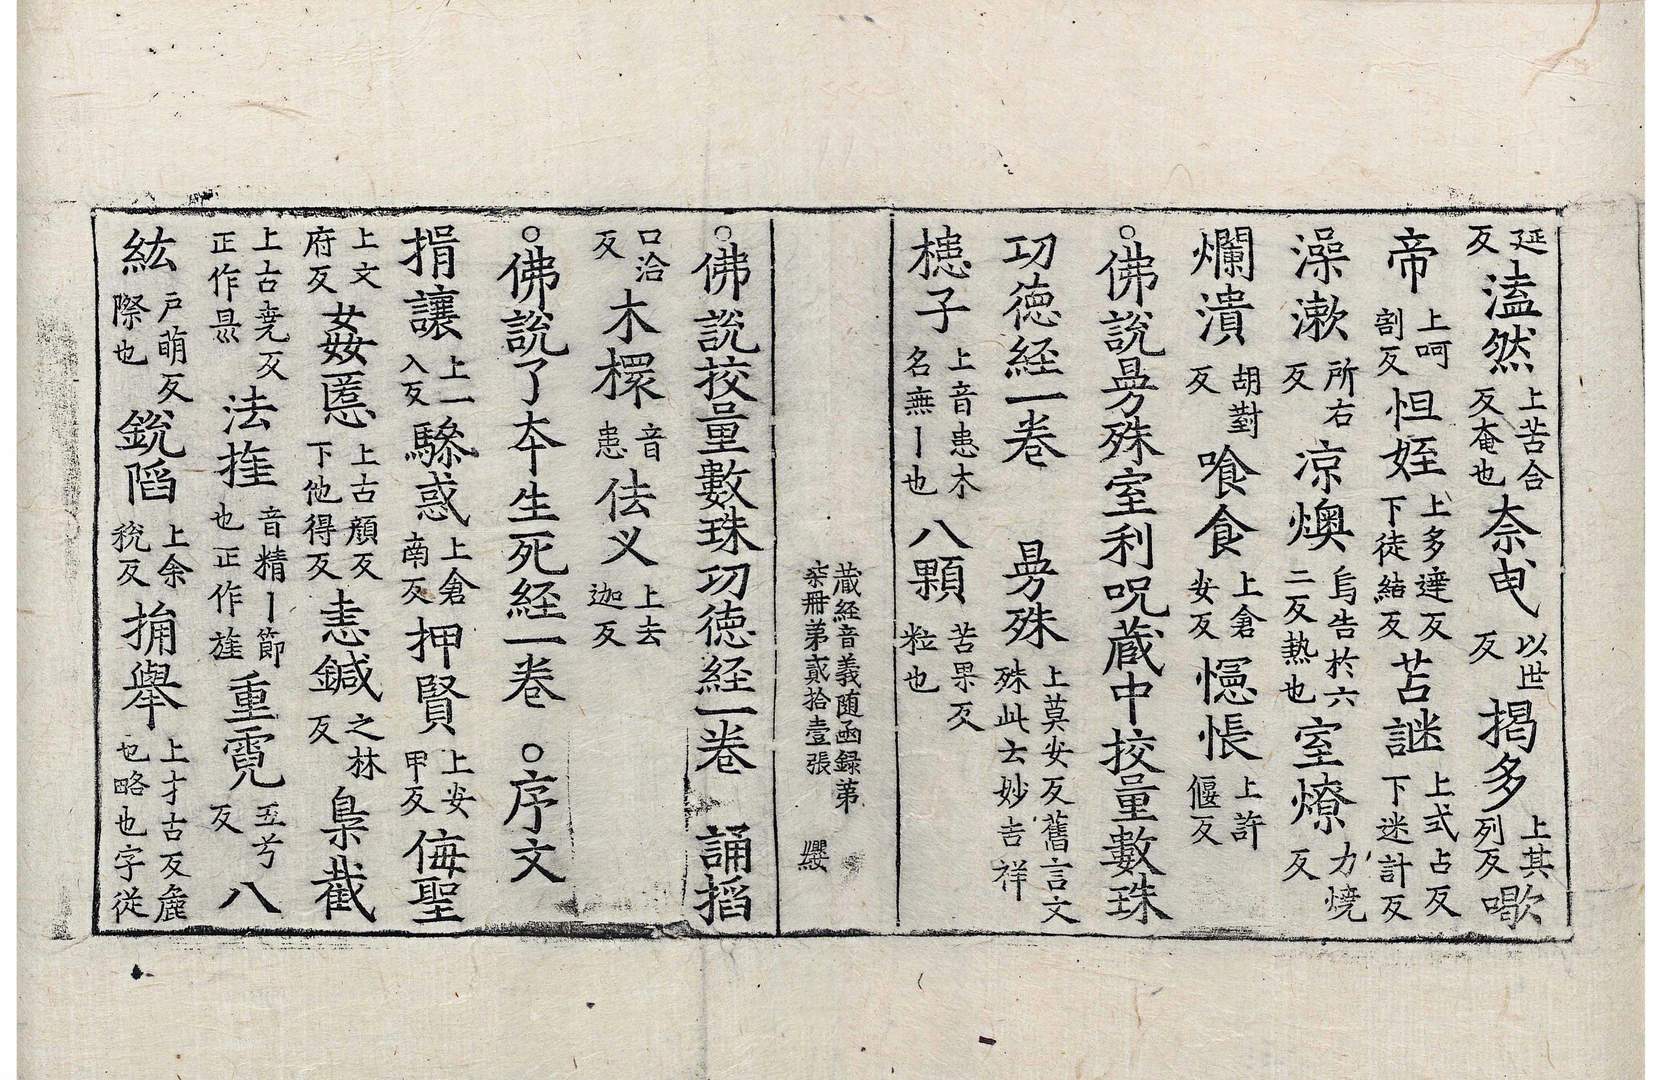 延反溘然上苦合反奄也柰曳以世反揭多上其列反㰤
帝上呵割反怛姪上多達反下徒結反苫謎上式占反下迷計反
澡漱所右反凉燠烏告於六二反熱也室燎力燒反
爛潰胡對反喰食上倉安反憶悵上許偃反
○佛說㬅殊室利呪蔵中挍量數珠
功徳経一巻 㬅殊上莫安反舊言文殊此云妙吉祥
槵子上音患木名無丨也八顆苦果反粒也
蔵経音義随函録第
柒冊第貳拾壹張 纓
○佛說挍量數珠功徳経一巻 誦搯
口洽反木槵音患佉义上去迦反
○佛說了夲生死経一巻 ○序文
捐讓上一入反驂惑上倉南反押賢上安甲反侮聖
上文府反姦慝上古顔反下他得反恚鍼之林反梟截
上古堯反正作㬎法旌音精丨節也正作旌重霓五兮反八
紘戶萌反際也銳㗖上余稅反捔舉上才古反麁也略也字從